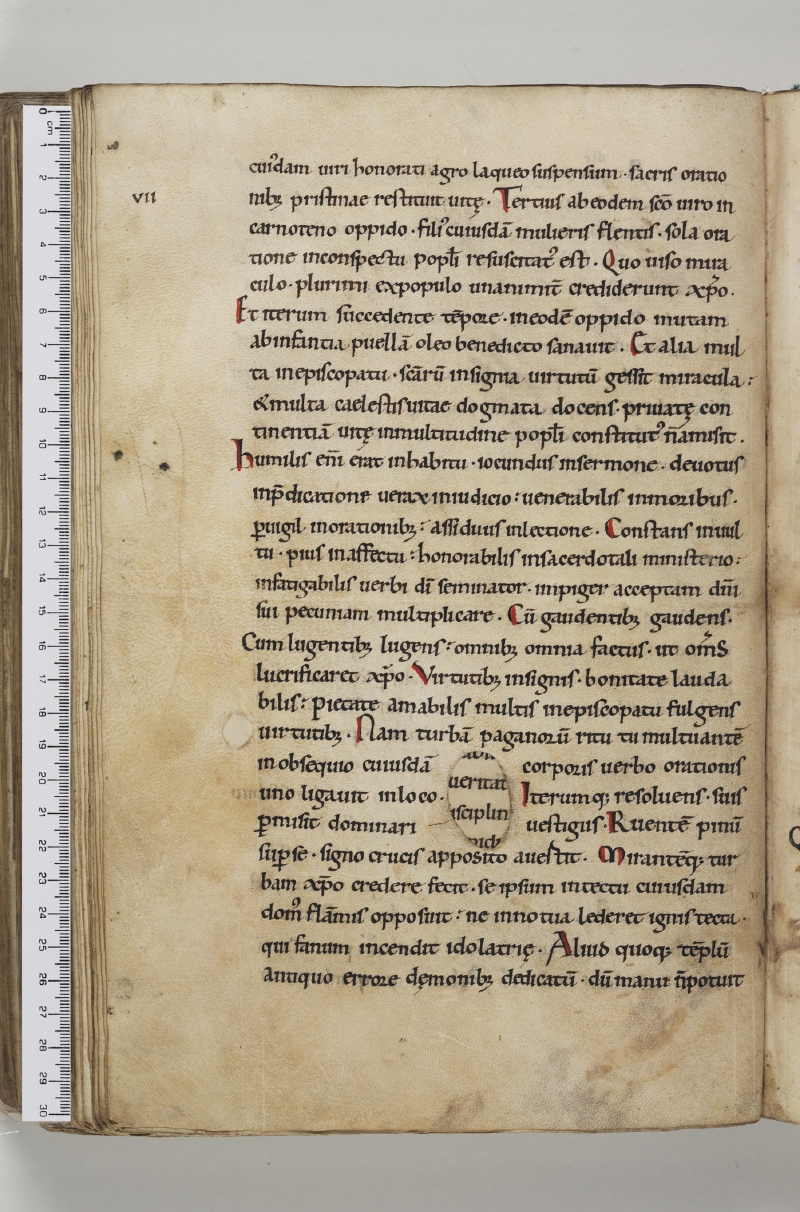 cuiꝰdam uiri honorati agro laqueo suspensum · sacris oratio
VII
nibꝫ pristinae restituit uitę · Tertius ab eodem sc̄o uiro in
carnoteno oppido · filiꝰ cuiusdā mulieris flentis · sola ora
tione inconspectu popl̄i resuscitatꝰ est · Quo uiso mira
culo · plurimi expopulo unanimit̄ crediderunt xp̄o .
Et iterum succedente tēpore · ineodē oppido mutam
abinfantia puellā oleo benedicto sanauit . Et alia mul
ta inepiscopatu · scārū insignia uirtutū gessit miracula :
& multa caelestis uitae dogmata docens · priuatę con
tinentiā uitę inmultitudine popl̄i constitutꝰ n̄amisit .
humilis eni̅ erat inhabitu · iocundus insermone · deuotus
inp̄dicatione uerax iniudicio : uenerabilis inmoribus .
ꝑuigil inorationibꝫ : assiduus inlectione · Constans inuul
tu · pius inaffectu : honorabilis insacerdotali ministerio :
infatigabilis uerbi di̅ seminator · impiger acceptam dn̄i
sui pecuniam multiplicare . Cū gaudentibꝫ gaudens .
Cum lugentibꝫ lugens : omnibꝫ omnia factus · ut om̄s
lucrificaret xp̄o · Virtutibꝫ insignis · bonitate lauda
bilis : pietate amabilis multis inepiscopatu fulgens
uirtutibꝫ · Nam turbā paganorū ritu tumultuantē
inobsequio cuiusdā corporis uerbo orationis
ueritat
uno ligauit inloco · Iterumqꝫ resoluens · suis
isciplin
ꝑmisit dominari uestigiis · Ruentē pinū
suꝑ se · signo crucis apposito auertit . Mirantēqꝫ tur
bam xp̄o credere fecit · se ipsum intectu cuiusdam
domꝰ flāmis opposuit : ne innoxia lederet ignis tecta ·
qui fanum incendit idolatrię . Aliud quoqꝫ tēplū
antiquo errore dęmonibꝫ dedicatū · dū manu n̄potuit